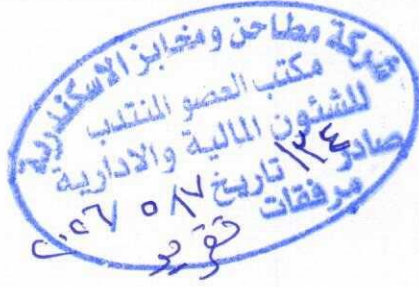 شركة مطاحن ومخابز الاسكندرية
مكتب العضو المنتدب
للشئون المالية والادارية
صادر ١٣٤ تاريخ ٥/١٧
مرفقات
تقرير